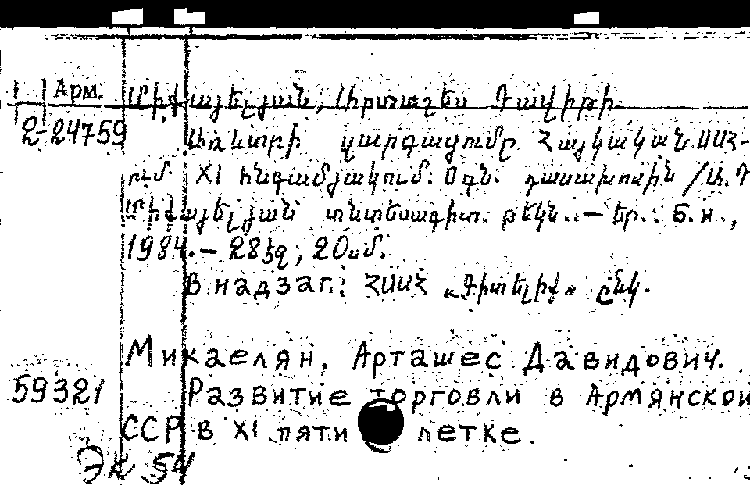 Арм. Միքայելյան, Արտաշես Դավիթի
2-24759 Առևտրի զարգացումը Հայկական ՍՍՀ-
ում XI հնգամյակում. Օգն. դասախոսին /Ա.Դ
Միքայելյան՝ տնտեսագիտ. թեկն..— Եր.: Б.и.,
1984.— 28էջ, 20սմ.
В надзаг.: ՀՍՍՀ «Գիտելիք» ընկ.
Микаелян, Арташес Давидович.
59321 Развитие торговли в Армянской
ССР в XI пяти летке.
Эк 54